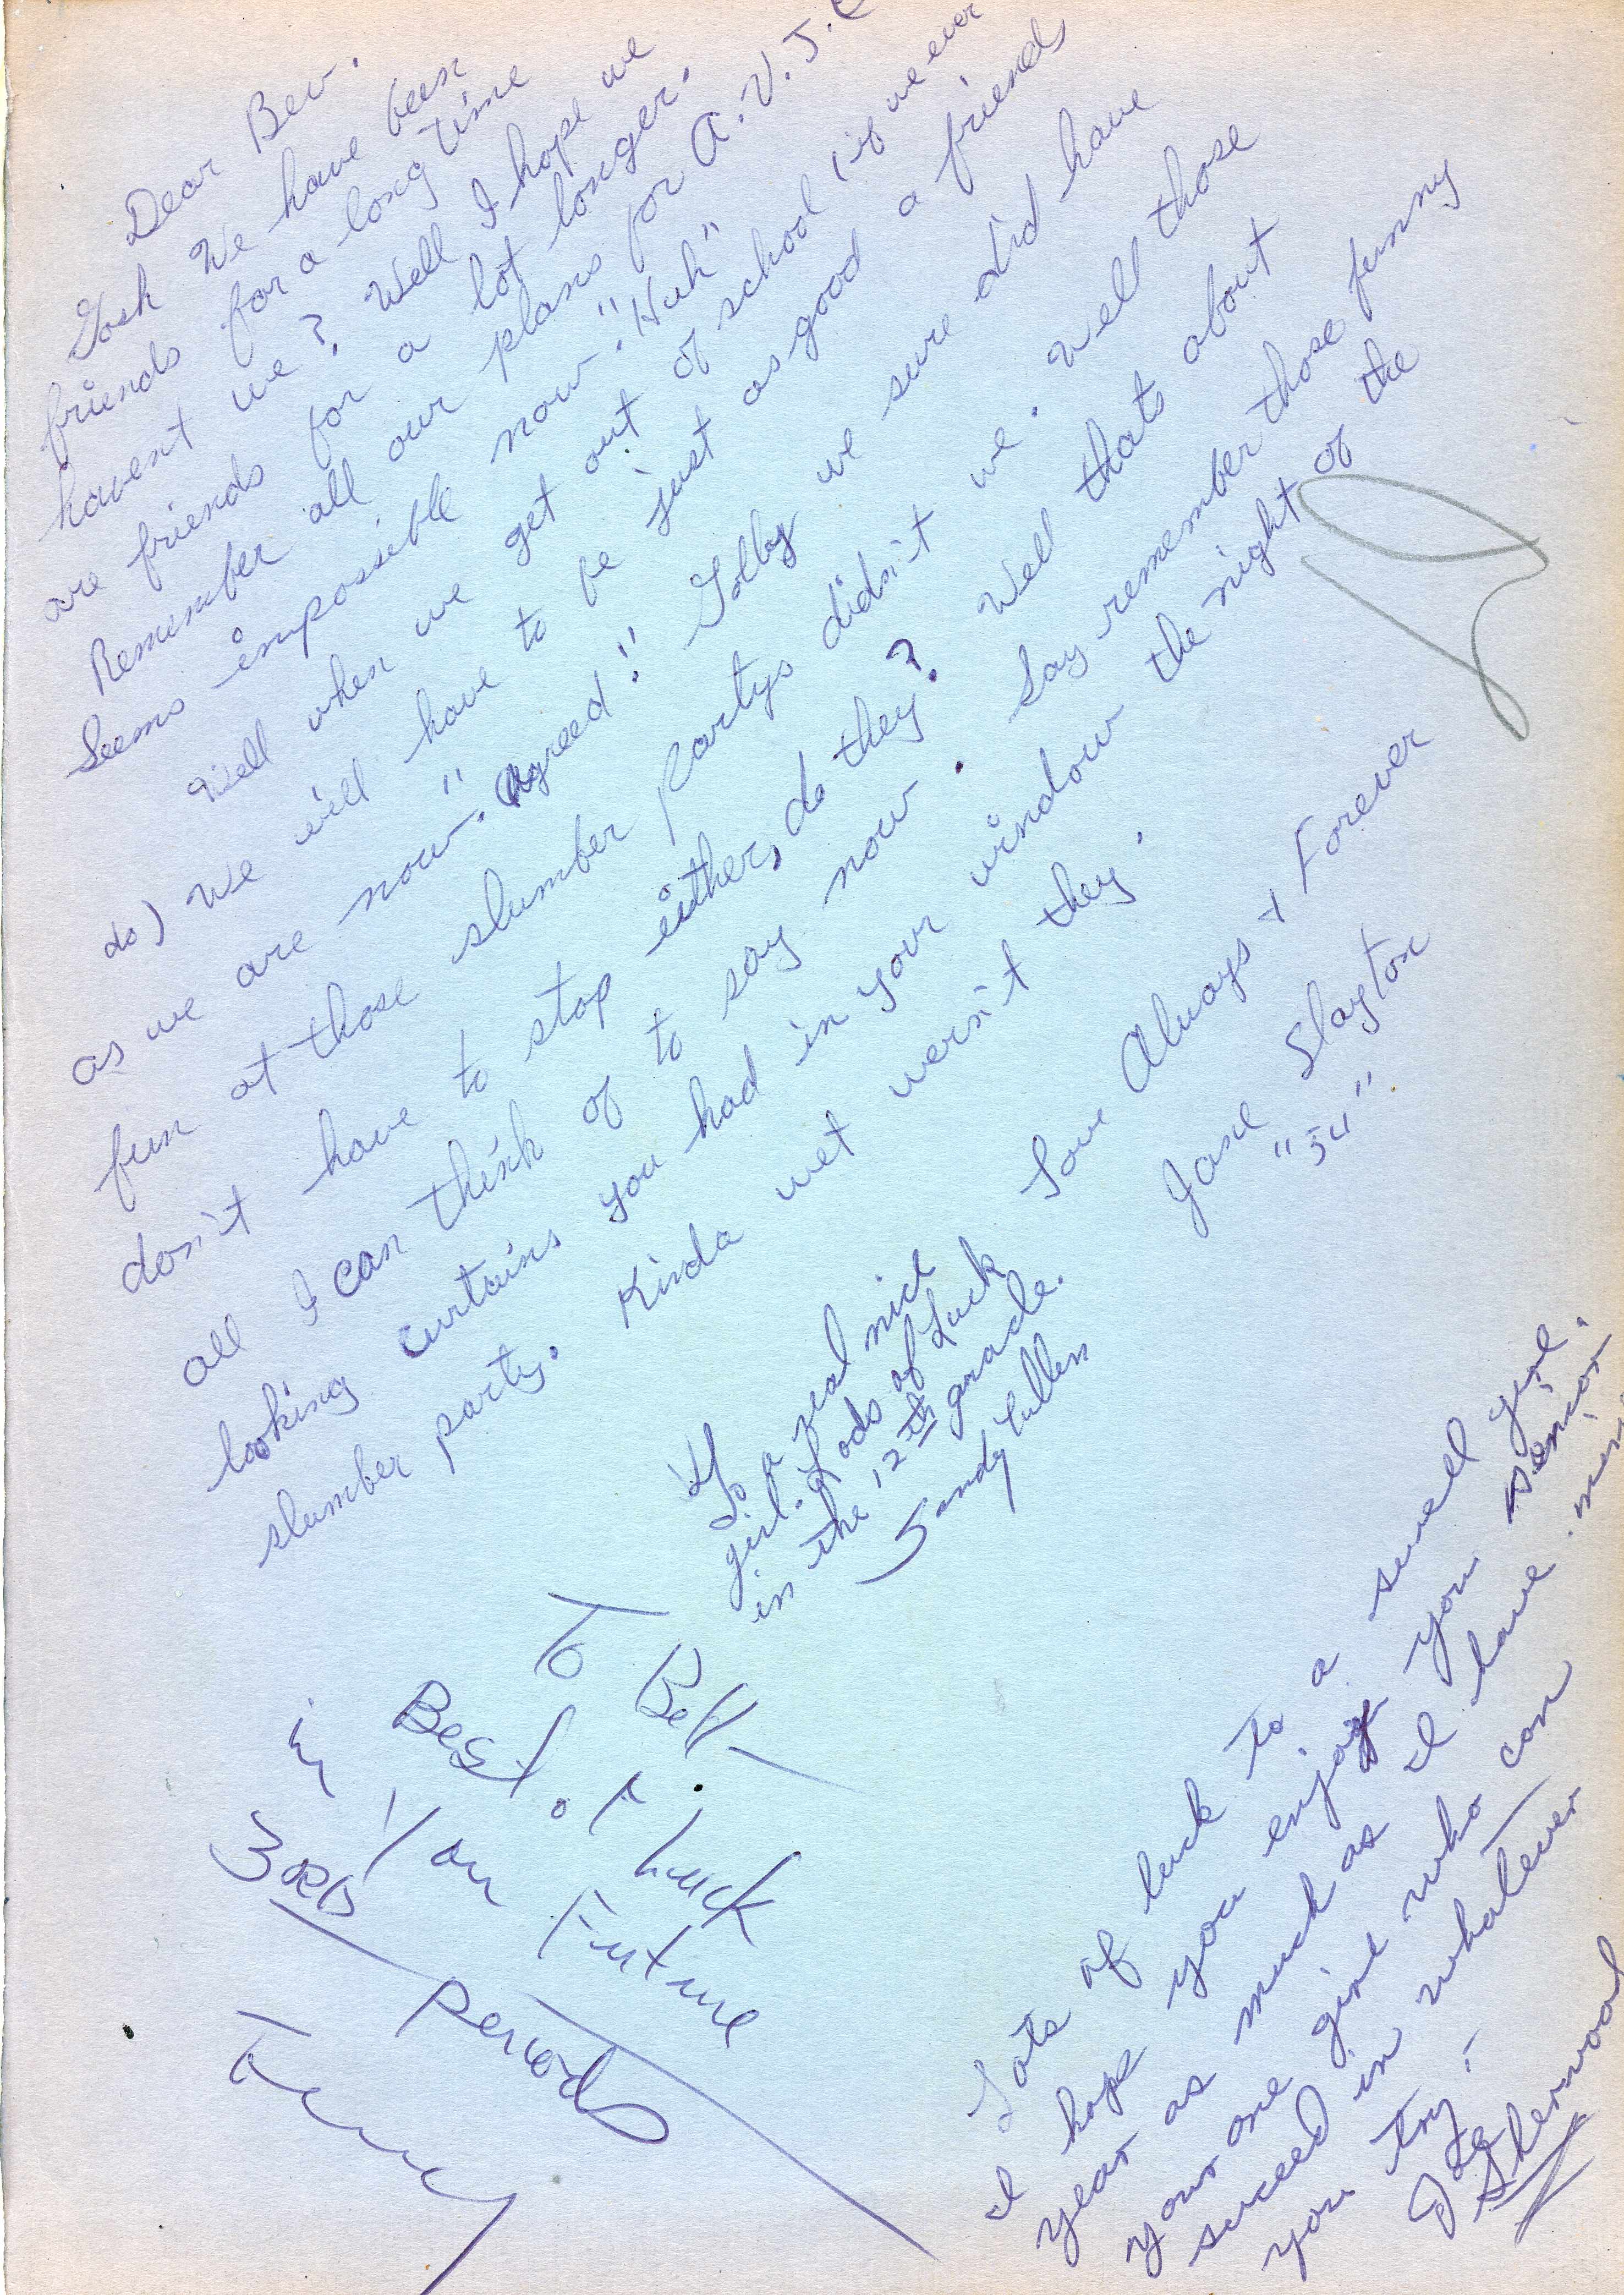 Dear Bev.
Gosh We have been
friends for a long time
havent we? Well I hope we
are friends for a lot longer.
Remember all our plans for A.V.J.C
Seems impossible now. "Huh"
Well when we get out of school (if we ever
do) We will have to be just as good a friends
as we are now. "Agreed!" Golley we sure did have
fun at those slumber partys didn't we. Well those
don't have to stop either, do they? Well thats about
all I can think of to say now. Say remember those funny
looking curtains you had in your window the night of the
slumber party. Kinda wet wern't they.
Love Always + Forever
Jane Slayton
"54"
To a real nice
girl. Lods of Luck
in the 12th grade.
Sandy
To Bev
Best of Luck
in Your Future
periods
Lots of luck to a swell girl.
I hope you enjoy you senior
year as much as I have mine
your one girl who can
suceed in whatever
you try -
Sherwood